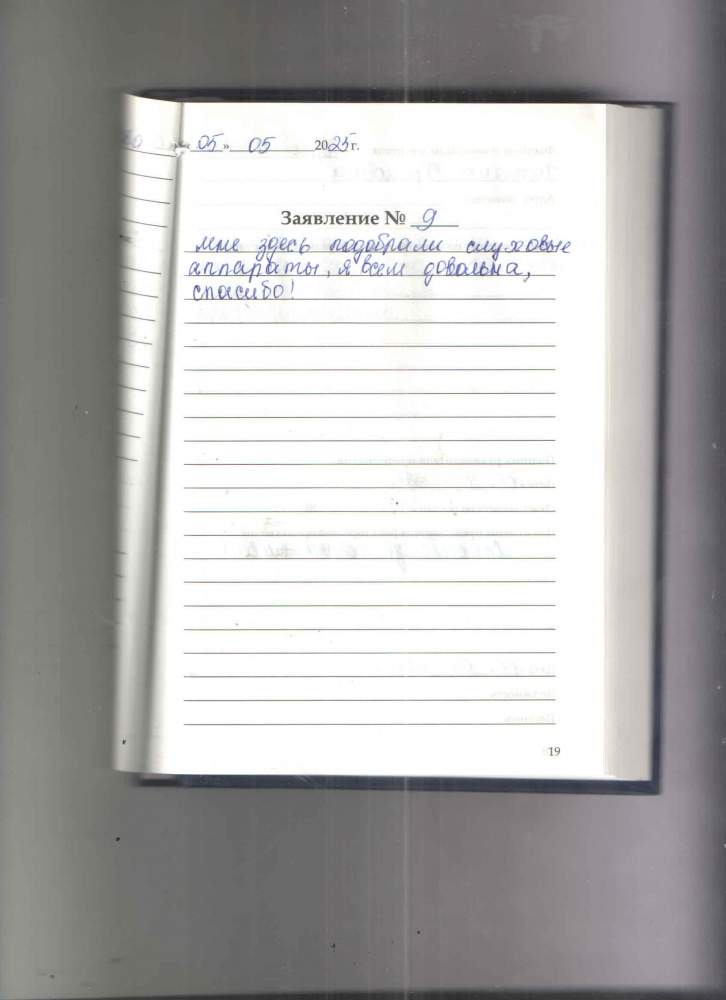 «05» 05 2025 г.
Заявление № 9
мне здесь подобрали слуховые
аппараты, я всем довольна,
спасибо!
19